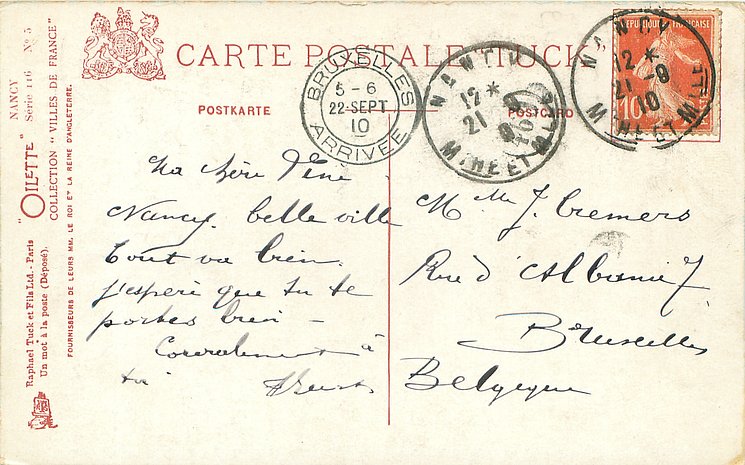 CARTE POSTALE TUCK
POSTKARTE
POSTCARD
BRUXELLES
5-6
22 SEPT
10
ARRIVÉE
NANCY
12*
21-9
10
MTHE ET MLLE
NANCY
12*
21-9
10
MTHE ET MLLE
RÉPUBLIQUE FRANÇAISE
10
Ma chère
Nancy, belle ville
tout va bien
j'espère que tu te
portes bien -
à
toi
Mlle J. Cremers
Rue d'Albanie 7
Bruxelles
Belgique
NANCY
Série 116 No 5
"OILETTE"
COLLECTION "VILLES DE FRANCE"
Raphael Tuck et Fils Ltd. - Paris
Un mot à la poste (Déposé).
FOURNISSEURS DE LEURS MM. LE ROI ET LA REINE D'ANGLETERRE.